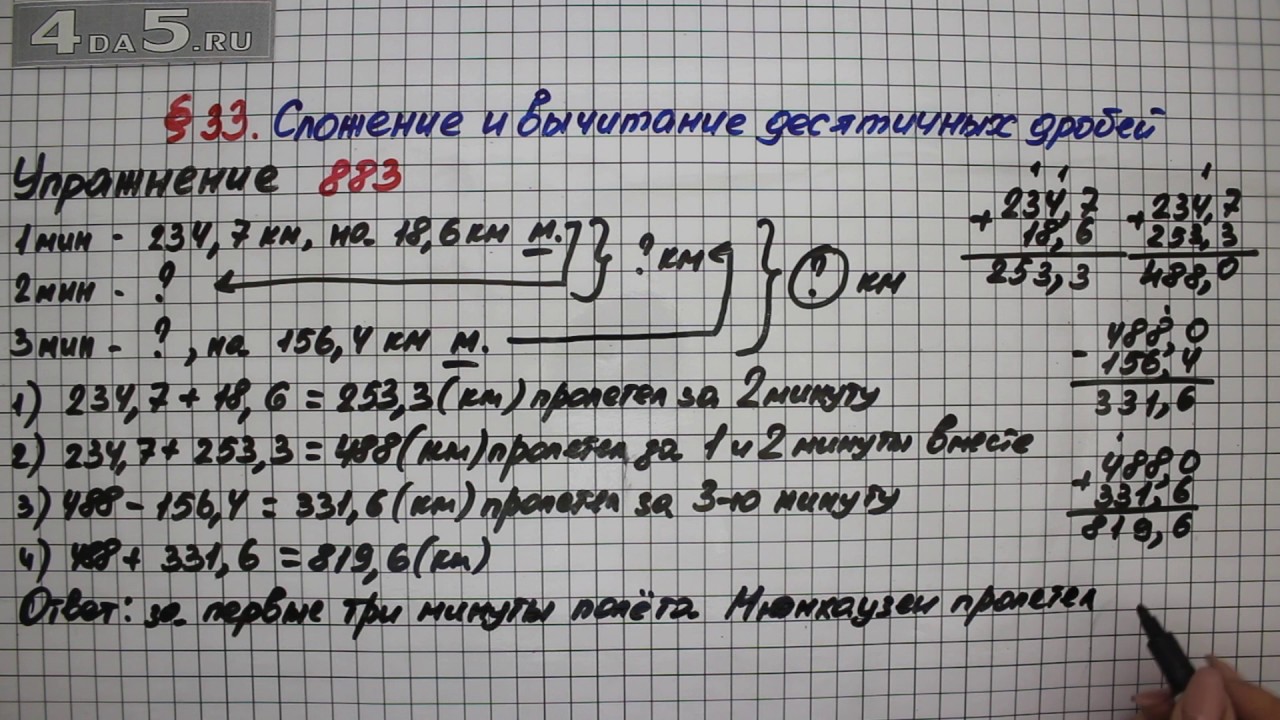 4DA5.RU
§ 33. Сложение и вычитание десятичных дробей
Упражнение 883
1 мин - 234,7 км, на 18,6 км м.
2 мин - ?
? км
? км
3 мин - ?, на 156,4 км м.
1) 234,7 + 18,6 = 253,3 (км) пролетел за 2 минуту
2) 234,7 + 253,3 = 488 (км) пролетел за 1 и 2 минуты вместе
3) 488 - 156,4 = 331,6 (км) пролетел за 3-ю минуту
4) 488 + 331,6 = 819,6 (км)
Ответ: за первые три минуты полёта Мюнхаузен пролетел
1 1
234,7
+ 18,6
253,3
1
234,7
+ 253,3
488,0
488,0
- 156,4
331,6
488,0
+ 331,6
819,6